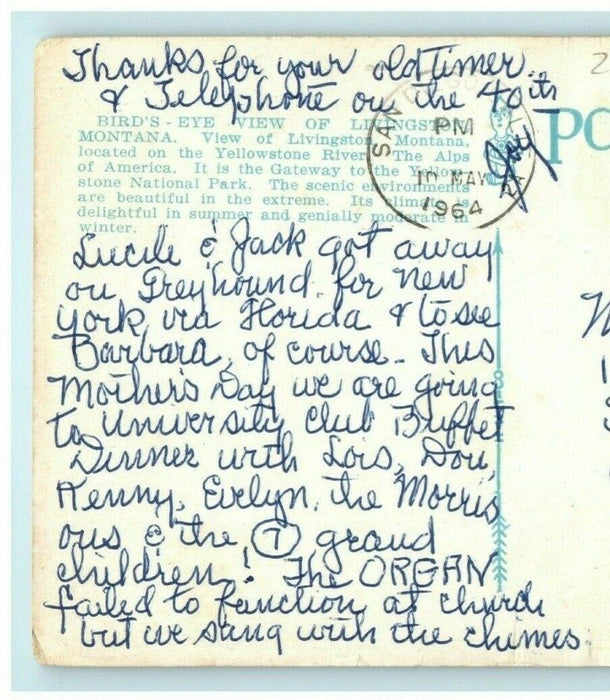 Thanks for your old timer
& Telephone on the 40ith
BIRD'S-EYE VIEW OF LIVINGSTON
MONTANA. View of Livingston, Montana,
located on the Yellowstone River. The Alps
of America. It is the Gateway to the Yellow-
stone National Park. The scenic environments
are beautiful in the extreme. Its climate is
delightful in summer and genially moderate in
winter.
SAN
PM
10 MAY
1964
Joy
PO
Lucile & Jack got away
on Greyhound for New
York via Florida & to see
Barbara, of course. This
Mother's Day we are going
to University Club Buffet
Dinner with Lois, Don,
Kenny, Evelyn, the Morris
ons & the 7 grand
children! The ORGAN
failed to function at church
but we sang with the chimes.